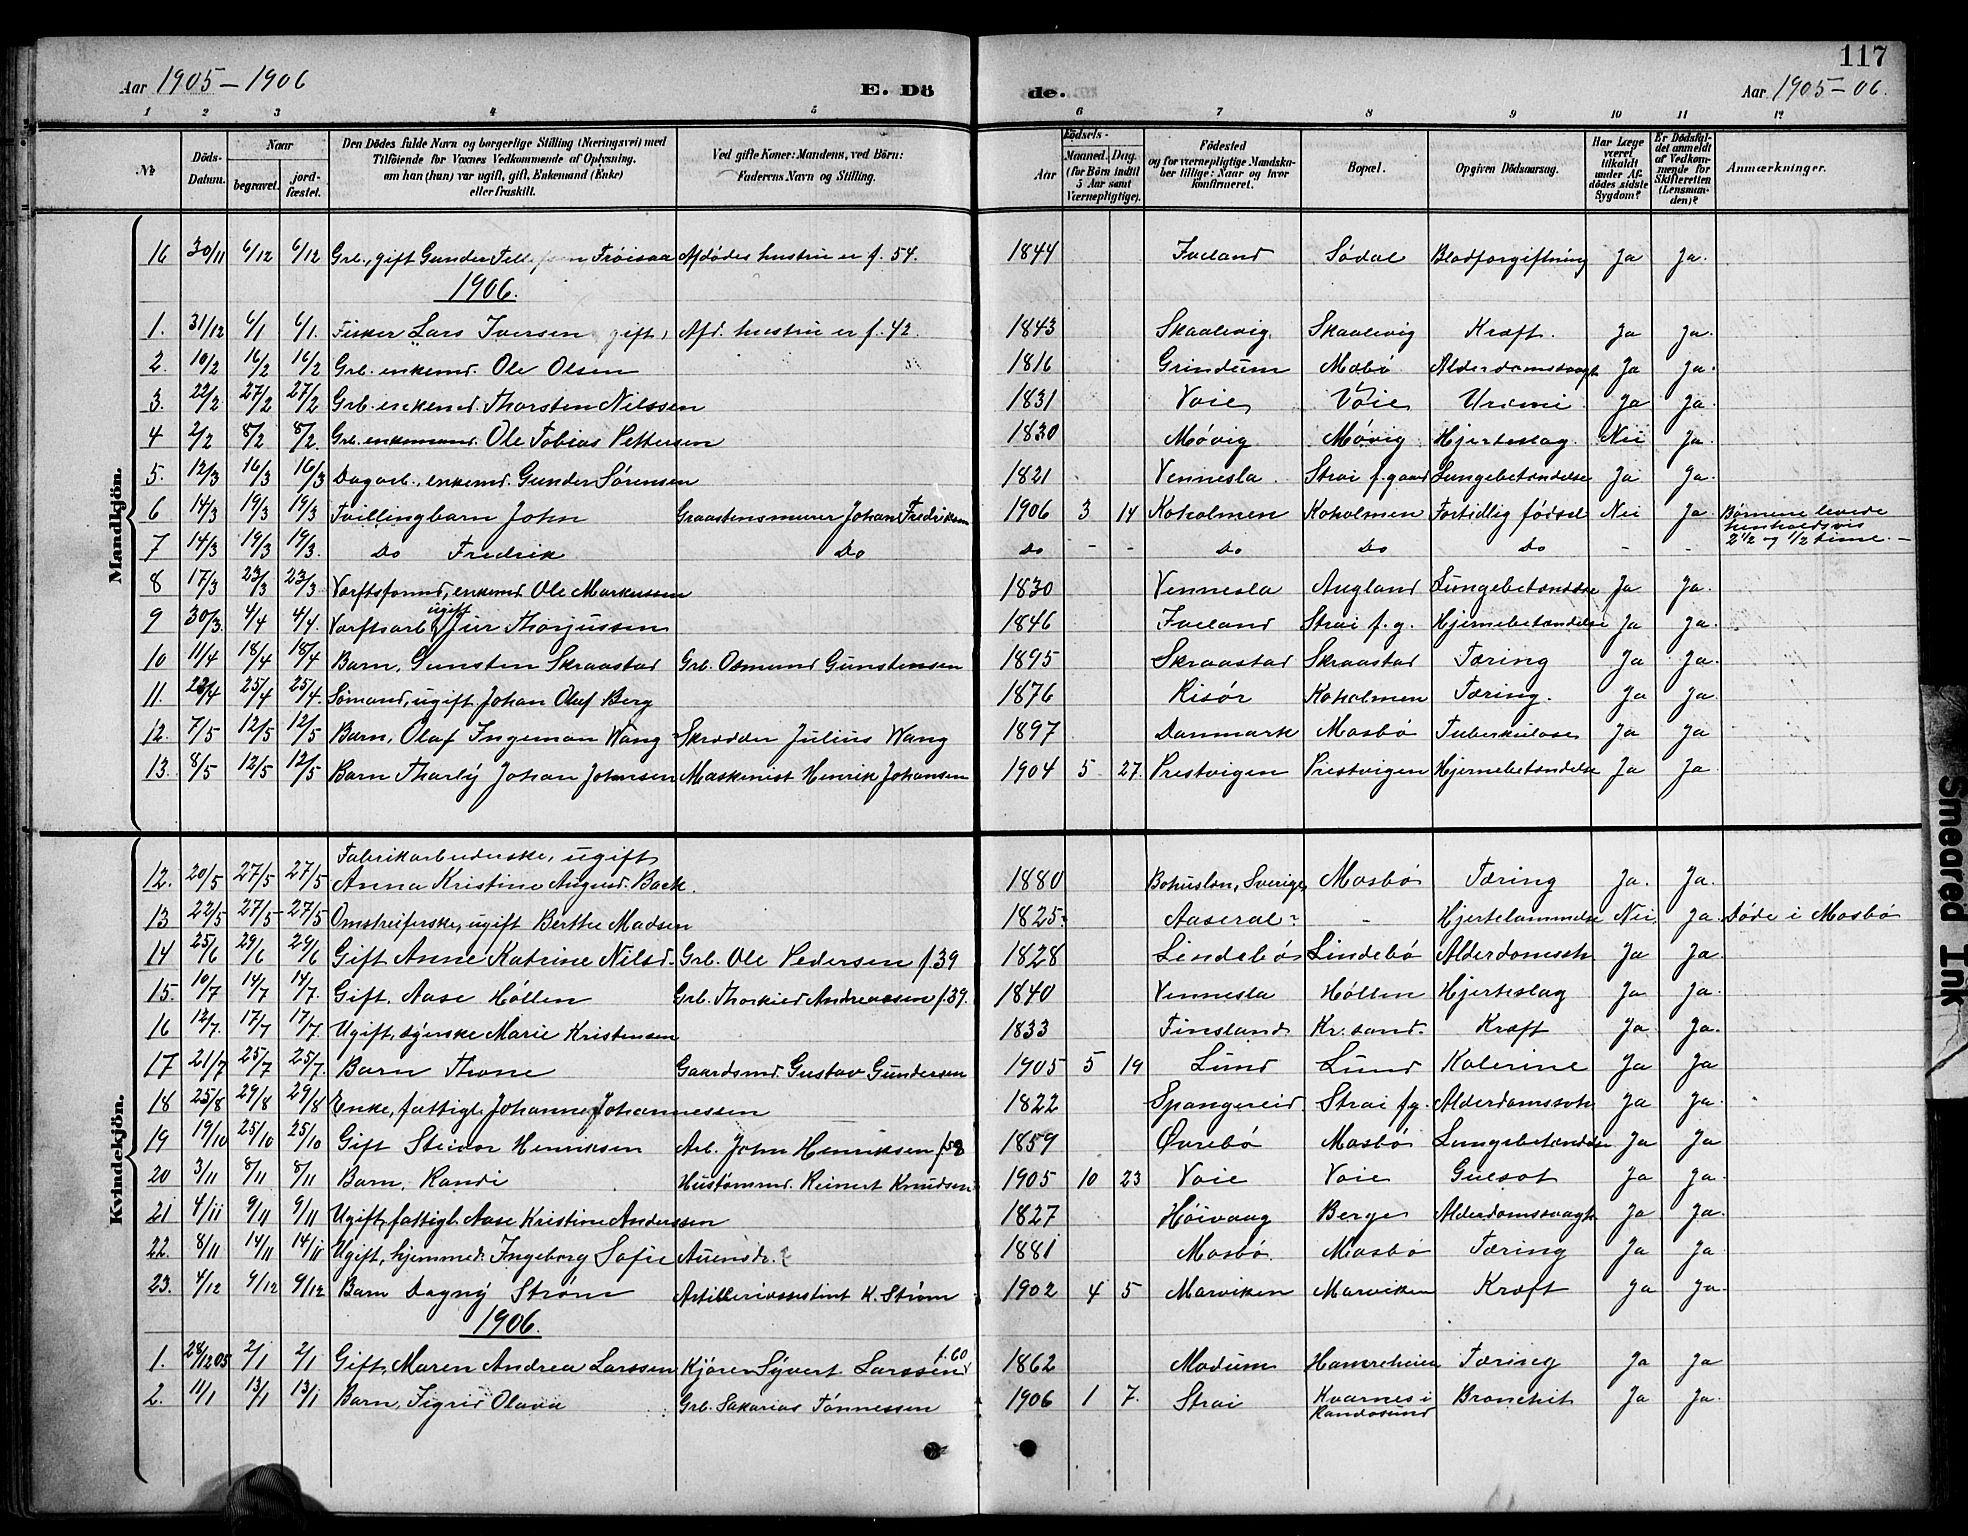 117
Aar 1905–1906 E. Dö de. Aar 1905–06.
1 2 3 4 5 6 7 8 9 10 11 12
№ Döds-Datum. Naar begravet. jord-fæstet. Den Dödes fulde Navn og borgerlige Stilling (Næringsvei) med Tilföiende for Voxnes Vedkommende af Oplysning, om han (hun) var ugift, gift, Enkemand (Enke) eller fraskilt. Ved gifte Koner: Mandens, ved Börn: Faderens Navn og Stilling. Födsels- Aar Maaned. Dag. (for Börn indtil 5 Aar samt Værnepligtige). Födested og for værnepligtige Mandskaber tillige: Naar og hvor konfirmeret. Bopæl. Opgiven Dödsaarsag. Har Læge været tilkaldt under Afdödes sidste Sygdom? Er Dödsfaldet anmeldt af Vedkommende for Skifteretten (Lensmanden)? Anmærkninger.
Mandkjön.
16 30/11 6/12 6/12 Grb., gift Gunder Tellefsen Tröisaa Afdödes hustru er f. 54. 1844 Iveland Södal Blodforgiftning Ja Ja.
1906.
1. 31/12 6/1 6/1. Fisker Lars Iversen, gift, Afd. hustru er f. 42. 1843 Skaalevig, Skaalevig Kræft. Ja Ja.
2. 10/2 16/2 16/2 Grb. enkemd. Ole Olsen 1816 Grindum Mosbö Alderdomssvagh Ja Ja.
3. 22/2 27/2 27/2 Grb. enkemd Thorsten Nilssen 1831 Voie Voie Urämi. Ja Ja.
4 2/2 8/2 8/2. Grb. enkemand. Ole Tobias Pettersen 1830 Mövig Mövig Hjerteslag. Nei Ja.
5. 12/3 16/3 16/3 Dagarb., enkemd. Gunder Sörensen 1821 Vennesla. Strai f.gaard Lungebetændelse Ja Ja.
6 14/3 19/3 19/3 Tvillingbarn John Graastensmurer Johan Fredriksen 1906 3 14 Koholmen Koholmen Fortidlig födsel Nei Ja Börnene levede henholdsvis 2 1/2 og 1/2 time.
7 14/3 19/3 19/3. Do Fredrik Do Do - - Do Do Do - - -
8 17/3 23/3 23/3 Værftsformd, enkemd Ole Markussen 1830 Vennesla Augland Lungebetændelse Ja Ja.
9 30/3. 4/4 4/4. Værftsarb. ugift Jver Thorjussen 1846 Iveland Strai f. g. Hjernebetændelse Ja Ja.
10 11/4 18/4 18/4 Barn, Gunsten Skraastad Grb. Osmund Gunstensen 1895 Skraastad Skraastad Tæring Ja Ja.
11. 22/4 25/4 25/4 Sömand, ugift, Johan Oluf Berg 1876 Risör Koholmen Tæring. Ja Ja.
12. 7/5 12/5 12/5 Barn, Olaf Ingeman Wang Skrædder Julius Wang 1897 Danmark Mosbö Tuberkulose Ja Ja
13. 8/5 12/5 12/5 Barn Tharly Johan Johansen Maskinist Henrik Johansen 1904 5 27. Prestvigen Prestvigen Hjernebetændelse Ja Ja.
Kvindekjön.
Fabrikarbeiderske, ugift
12. 20/5 27/5 27/5 Anna Kristine August. Back. 1880 Bohuslen, Sverige, Mosbö Tæring Ja. Ja.
13 22/5 27/5 27/5 Omstreiferske, ugift Berthe Madsen 1825? Aaseral? - Hjertelammelse Nei. Ja Döde i Mosbö
14 25/6 29/6 29/6 Gift Anne Katrine Nilsd. Grb. Ole Pedersen f. 39 1828 Lindebö Lindebö Alderdomssvh Ja Ja.
15. 10/7 14/7 14/7. Gift, Aase Höllen Grb. Thorkild Andreassen f. 39. 1840 Vennesla Höllen Hjerteslag Ja Ja.
16 12/7. 17/7 17/7. Ugift, synske Marie Kristensen 1833 Finsland Kr. sand. Kræft Ja Ja.
17 21/7 25/7 25/7. Barn Thone Gaardsmd. Gustav Gundersen 1905 5 19 Lund Lund Kolerine Ja Ja
18 25/8 29/8 29/8 Enke, fattigl. Johanne Johannessen 1822 Spangereid Strai fg. Alderdomssvh Ja Ja.
19 19/10 25/10 25/10 Gift Steinor Henriksen Arb. John Henriksen f. 58 1859 Övrebö Mosbö Lungebetændelse Ja Ja
20 3/11 8/11 8/11 Barn, Randi Hustömmd. Reinert Knudsen 1905 10 23 Voie Voie Gulsot Ja Ja.
21 4/11 9/11 9/11 Ugift, fattigl. Aase Kristine Anderssen 1827 Höivaag Berge Alderdomssvagh Ja Ja.
22. 8/11 14/11 14/11 Ugift, hjemmed. Ingeborg Sofie Auensdr.? 1881 Mosbö. Mosbö Tæring Ja Ja.
23. 4/12 9/12 9/12 Barn Dagny Ström Artilleriassistent K. Ström 1902 4 5 Marviken Marviken Kræft Ja Ja.
1906.
1. 28/12 05 2/1 2/1 Gift, Maren Andrea Larssen Kjörer Syvert Larssen f. 60 1862 Modum Hamreheien Tæring Ja Ja
2. 11/1 13/1 13/1 Barn, Sigrid Olava Grb. Sakarias Tönnessen 1906 1 7. Strai Kvarnes i Randösund Bronchit Ja Ja.
Smeared Ink